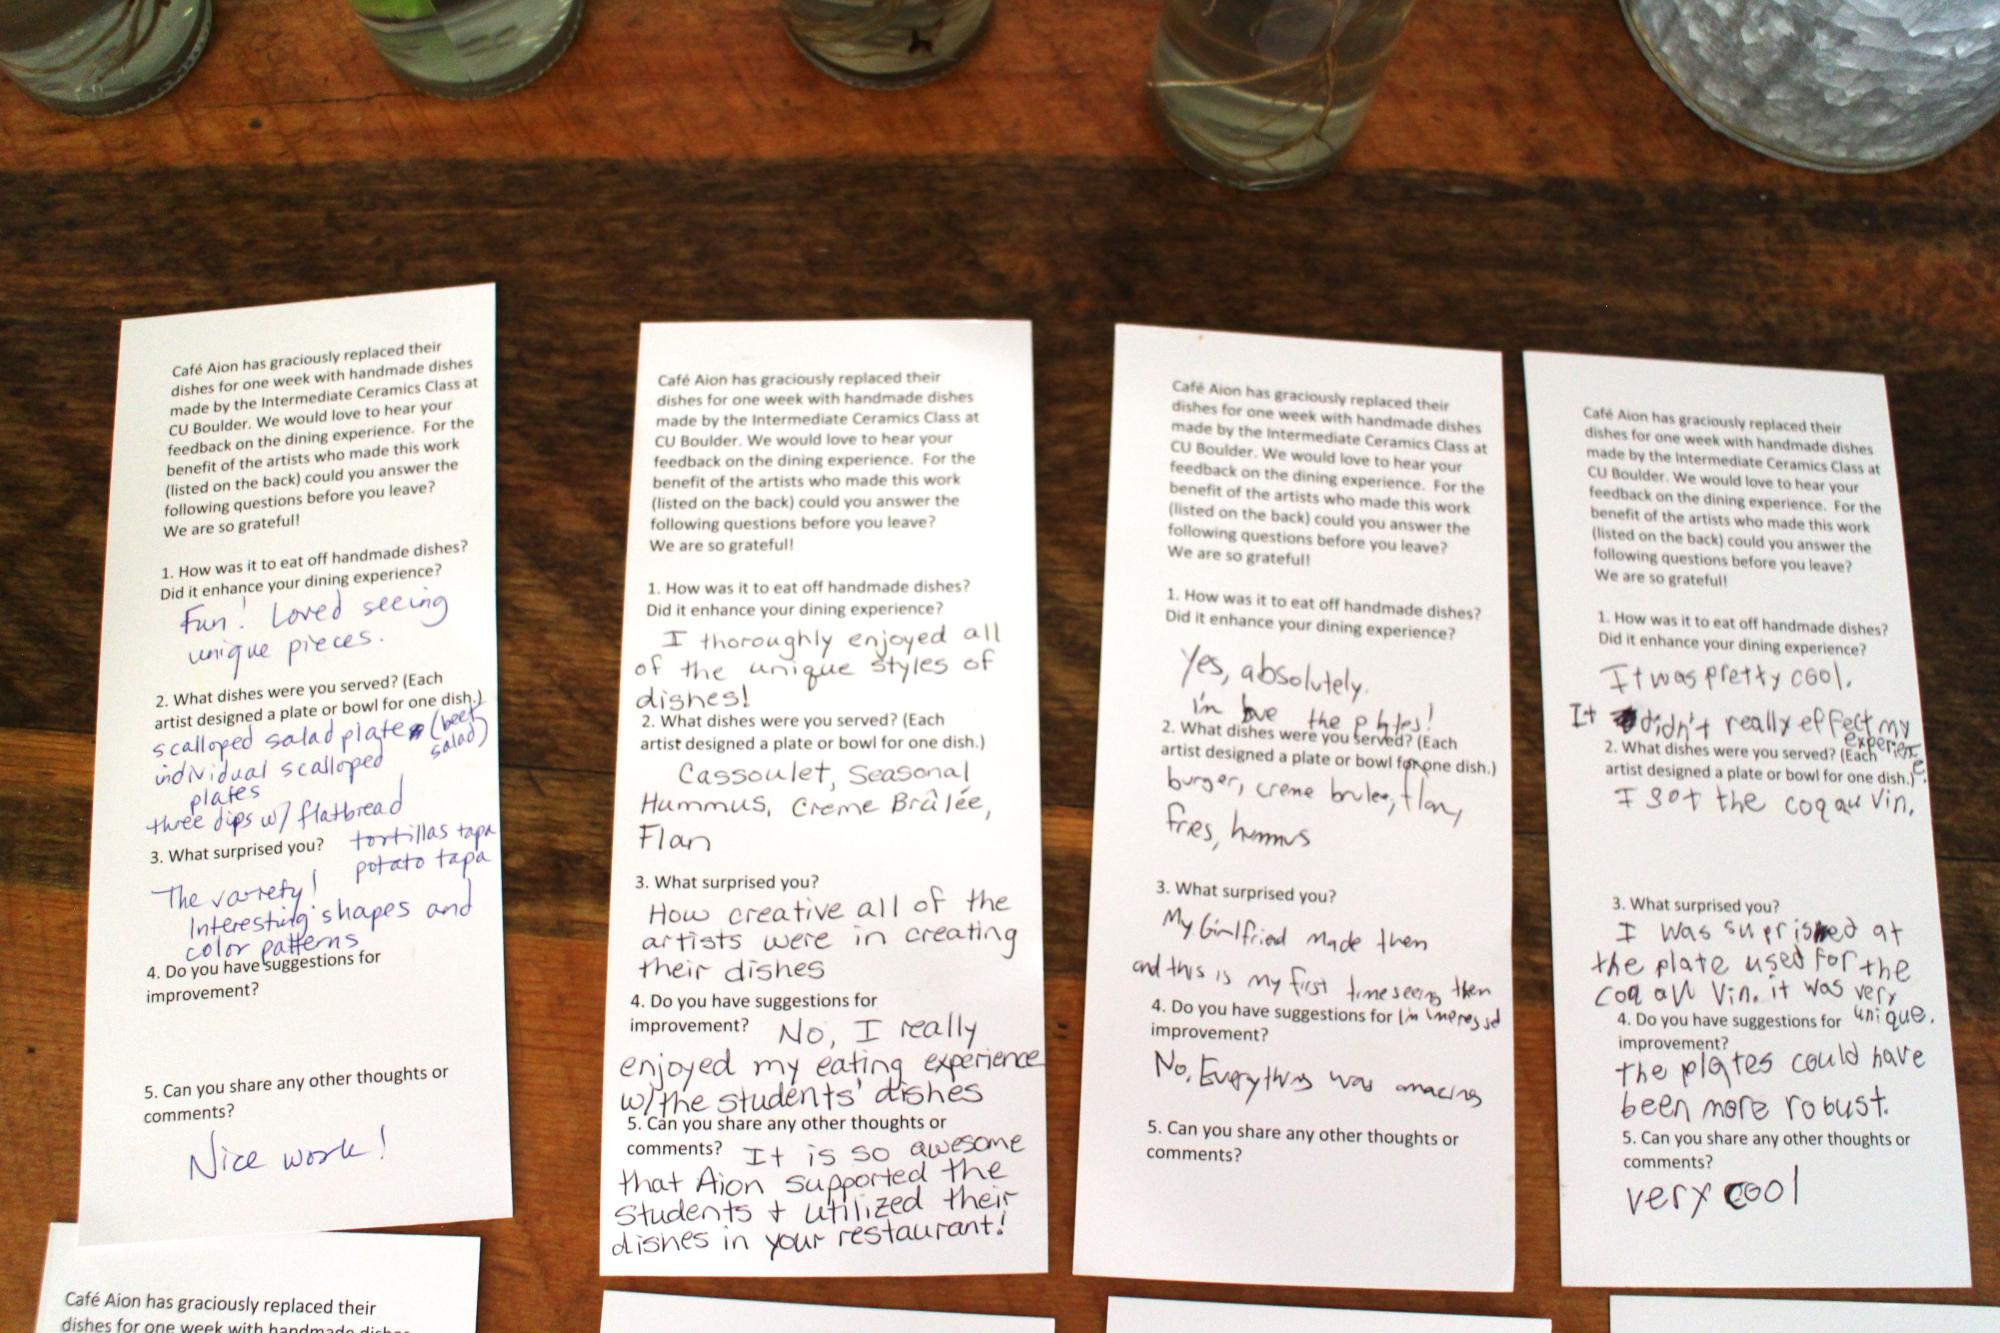 Café Aion has graciously replaced their
dishes for one week with handmade dishes
made by the Intermediate Ceramics Class at
CU Boulder. We would love to hear your
feedback on the dining experience. For the
benefit of the artists who made this work
(listed on the back) could you answer the
following questions before you leave?
We are so grateful!
1. How was it to eat off handmade dishes?
Did it enhance your dining experience?
Fun! Loved seeing
unique pieces.
2. What dishes were you served? (Each
artist designed a plate or bowl for one dish.)
scalloped salad plate (beet
salad)
individual scalloped
plates
three dips w/ flatbread
tortillas tapa
3. What surprised you?
potato tapa
The variety!
Interesting shapes and
color patterns
4. Do you have suggestions for
improvement?
5. Can you share any other thoughts or
comments?
Nice work!
Café Aion has graciously replaced their
dishes for one week with handmade dishes
made by the Intermediate Ceramics Class at
CU Boulder. We would love to hear your
feedback on the dining experience. For the
benefit of the artists who made this work
(listed on the back) could you answer the
following questions before you leave?
We are so grateful!
1. How was it to eat off handmade dishes?
Did it enhance your dining experience?
I thoroughly enjoyed all
of the unique styles of
dishes!
2. What dishes were you served? (Each
artist designed a plate or bowl for one dish.)
Cassoulet, Seasonal
Hummus, Creme Brûlée,
Flan
3. What surprised you?
How creative all of the
artists were in creating
their dishes
4. Do you have suggestions for
improvement? No, I really
enjoyed my eating experience
w/the students' dishes
5. Can you share any other thoughts or
comments? It is so awesome
that Aion supported the
students + utilized their
dishes in your restaurant!
Café Aion has graciously replaced their
dishes for one week with handmade dishes
made by the Intermediate Ceramics Class at
CU Boulder. We would love to hear your
feedback on the dining experience. For the
benefit of the artists who made this work
(listed on the back) could you answer the
following questions before you leave?
We are so grateful!
1. How was it to eat off handmade dishes?
Did it enhance your dining experience?
Yes, absolutely.
i'm love the plates!
2. What dishes were you served? (Each
artist designed a plate or bowl for one dish.)
burger, creme brulee, flan,
fries, hummus
3. What surprised you?
My Girlfriend made them
and this is my first time seeing them
4. Do you have suggestions for I'm impressed
improvement?
No, Everything was amazing
5. Can you share any other thoughts or
comments?
Café Aion has graciously replaced their
dishes for one week with handmade dishes
made by the Intermediate Ceramics Class at
CU Boulder. We would love to hear your
feedback on the dining experience. For the
benefit of the artists who made this work
(listed on the back) could you answer the
following questions before you leave?
We are so grateful!
1. How was it to eat off handmade dishes?
Did it enhance your dining experience?
It was pretty cool.
It didn't really effect my
experience.
2. What dishes were you served? (Each
artist designed a plate or bowl for one dish.)
I got the coq au vin.
3. What surprised you?
I was suprised at
the plate used for the
coq au vin. it was very
unique.
4. Do you have suggestions for
improvement?
the plates could have
been more robust.
5. Can you share any other thoughts or
comments?
very cool
Café Aion has graciously replaced their
dishes for one week with handmade dishes